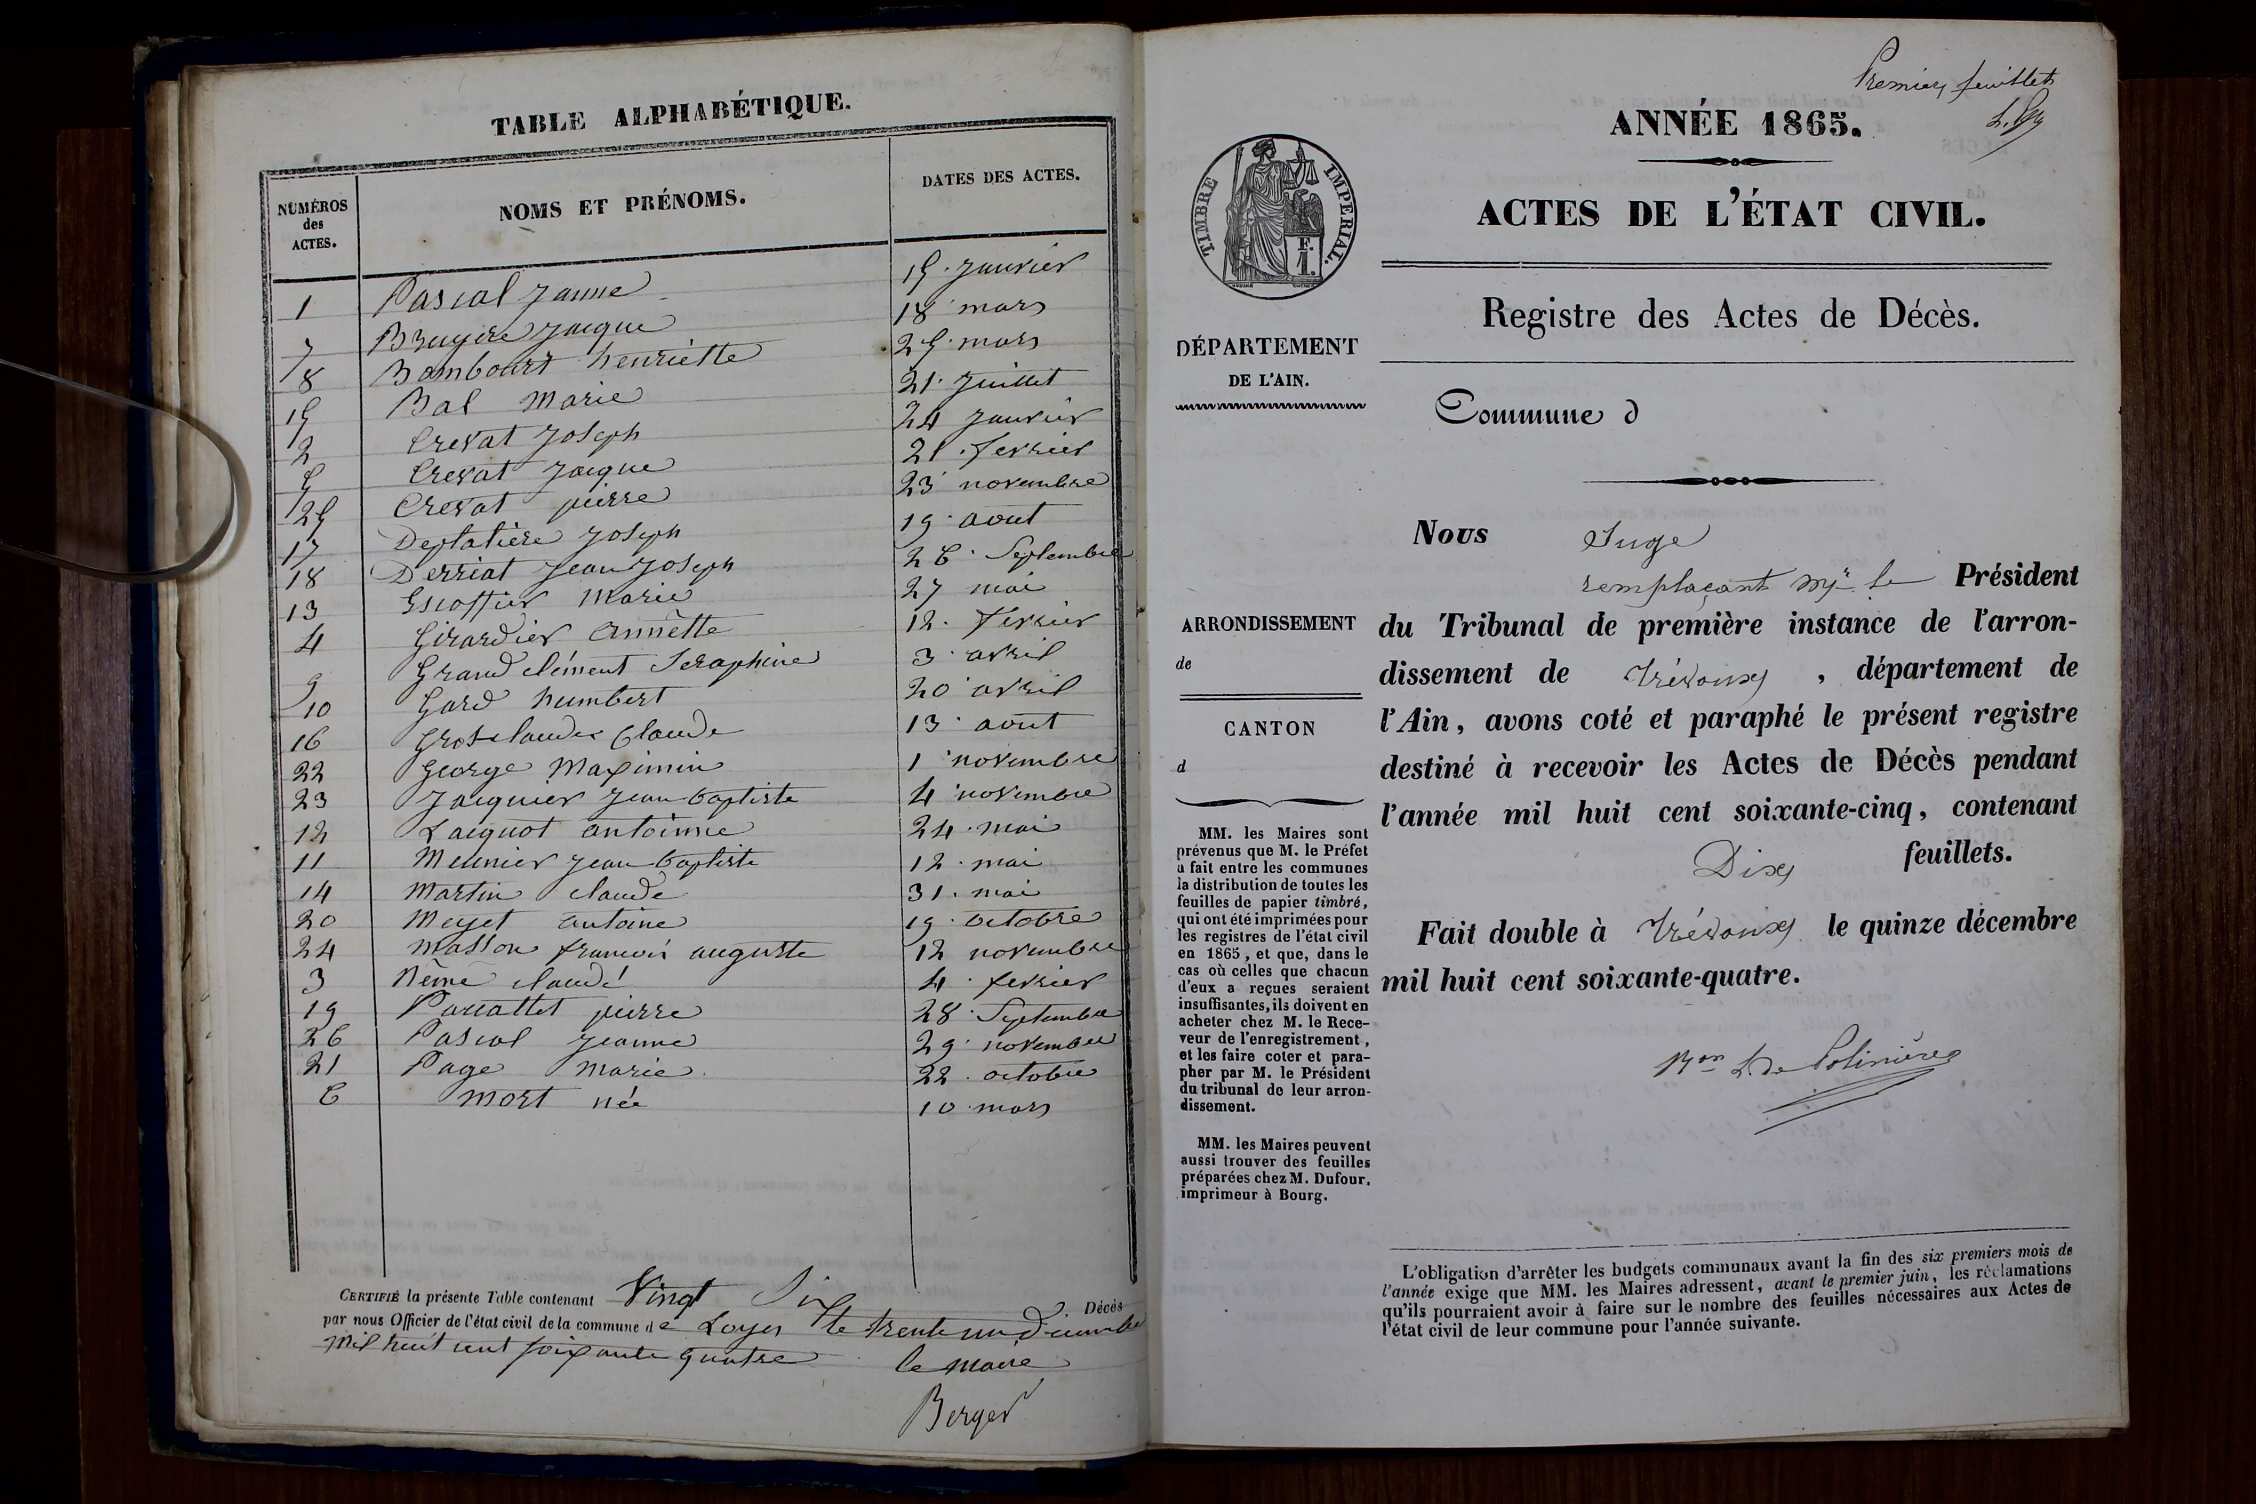 TABLE ALPHABÉTIQUE.
NUMÉROS des ACTES. NOMS ET PRÉNOMS. DATES DES ACTES.
1 Pascal Janne 15. Janvier
7 Bruyere Jacque 18 mars
8 Bombourt henriette 25. mars
15 Bal Marie 21. Juillet
2 Crevat Joseph 24 Janvier
5 Crevat Jacque 21. fevrier
25 Crevat pierre 23 novembre
17 Deplatière Joseph 19. aout
18 Derriat Jean Joseph 26. Septembre
13 Escoffier Marie 27 mai
4 Girardier Annette 12. fevrier
9 Grand clément Seraphine 3. avril
10 Gard humbert 20 avril
16 Grosclaude Claude 13. aout
22 George Maximin 1 novembre
23 Jacquier Jean baptiste 4 novembre
12 Lacquot antoinne 24. mai
11 Meunier Jean baptiste 12. mai
14 Martin claude 31. mai
20 Meyet antoine 19. octobre
24 Masson francois auguste 12 novembre
3 Nême claude 4. fevrier
19 Pauattet pierre 28. Septembre
26 Pascal Jeanne 29. novembre
21 Page Marie. 22. octobre
6 Mort née 10. mars
CERTIFIÉ la présente Table contenant Vingt Six Décès
par nous Officier de l'état civil de la commune de Loyes le trente un décembre
Mil huit cent soixante quatre
le maire
Berger
Premier feuillet
ANNÉE 1865.
ACTES DE L'ÉTAT CIVIL.
Registre des Actes de Décès.
TIMBRE IMPERIAL.
F.
1.
DÉPARTEMENT
DE L'AIN.
Commune d
ARRONDISSEMENT
de
CANTON
d
MM. les Maires sont
prévenus que M. le Préfet
a fait entre les communes
la distribution de toutes les
feuilles de papier timbré,
qui ont été imprimées pour
les registres de l'état civil
en 1865, et que, dans le
cas où celles que chacun
d'eux a reçues seraient
insuffisantes, ils doivent en
acheter chez M. le Rece-
veur de l'enregistrement,
et les faire coter et para-
pher par M. le Président
du tribunal de leur arron-
dissement.
MM. les Maires peuvent
aussi trouver des feuilles
préparées chez M. Dufour,
imprimeur à Bourg.
Nous Juge
remplaçant Mr le Président
du Tribunal de première instance de l'arron-
dissement de Trévoux, département de
l'Ain, avons coté et paraphé le présent registre
destiné à recevoir les Actes de Décès pendant
l'année mil huit cent soixante-cinq, contenant
Dix feuillets.
Fait double à Trévoux le quinze décembre
mil huit cent soixante-quatre.
Bon L. de Polinière
L'obligation d'arrêter les budgets communaux avant la fin des six premiers mois de
l'année exige que MM. les Maires adressent, avant le premier juin, les réclamations
qu'ils pourraient avoir à faire sur le nombre des feuilles nécessaires aux Actes de
l'état civil de leur commune pour l'année suivante.